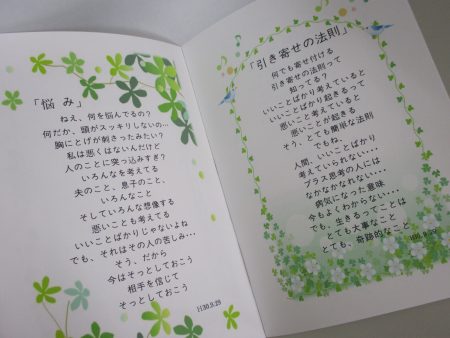 「悩 み」
ねえ、何を悩んでるの？
何だか、頭がスッキリしないの…
胸にとげが刺さったみたい？
私は悪くはないんだけど
人のことに突っ込みすぎ？
いろんなを考えてる
夫のこと、息子のこと、
いろんなこと
そしていろんな想像する
悪いことも考てる
いいことばかりじゃないよね
でも、それはその人の苦しみ…
そう、だから
今はそっとしておこう
相手を信じて
そっとしておこう
H30.9.25
「引き寄せの法則」
何でも寄せ付ける
引き寄せの法則って
知ってる？
いいことばかり考えていると
いいことばかり起きるって
悪いこと考えていると
悪いことが起きる
そう、とても簡単な法則
でもね、
人間、いいことばかり
考えていられない…
プラス思考の人には
なかなかなれない…
病気になった意味
今もよくわからない…
でも、生きるってことは
とても大事なこと
とても、奇跡的なこと